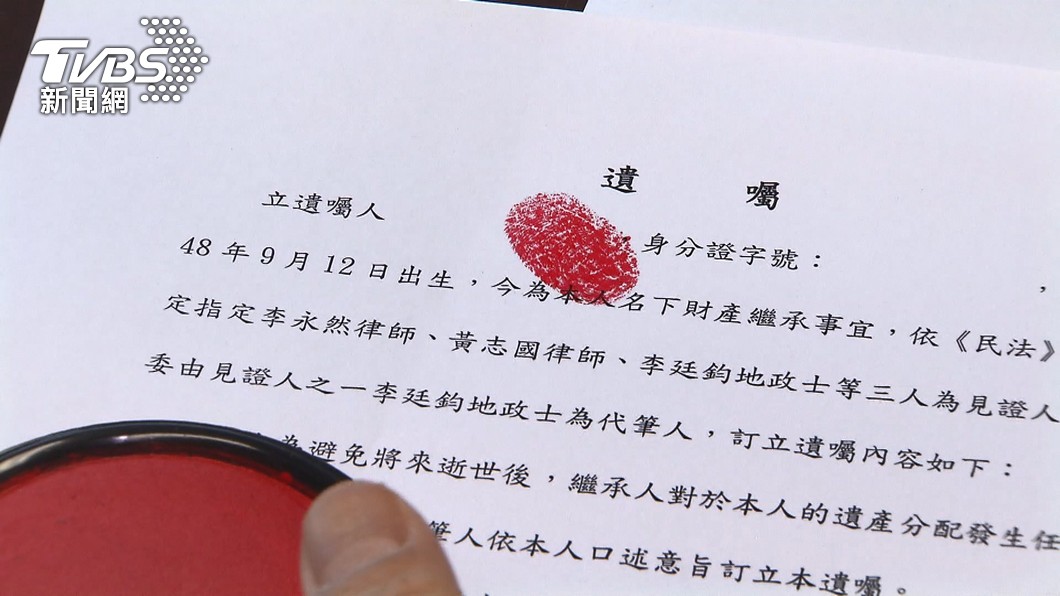 TVBS
新聞網
遺 囑
立遺囑人 ，身分證字號： ，
48年9月12日出生，今為本人名下財產繼承事宜，依《民法》
定指定李永然律師、黃志國律師、李廷鈞地政士等三人為見證人
委由見證人之一李廷鈞地政士為代筆人，訂立遺囑內容如下：
為避免將來逝世後，繼承人對於本人的遺產分配發生任
筆人依本人口述意旨訂立本遺囑。